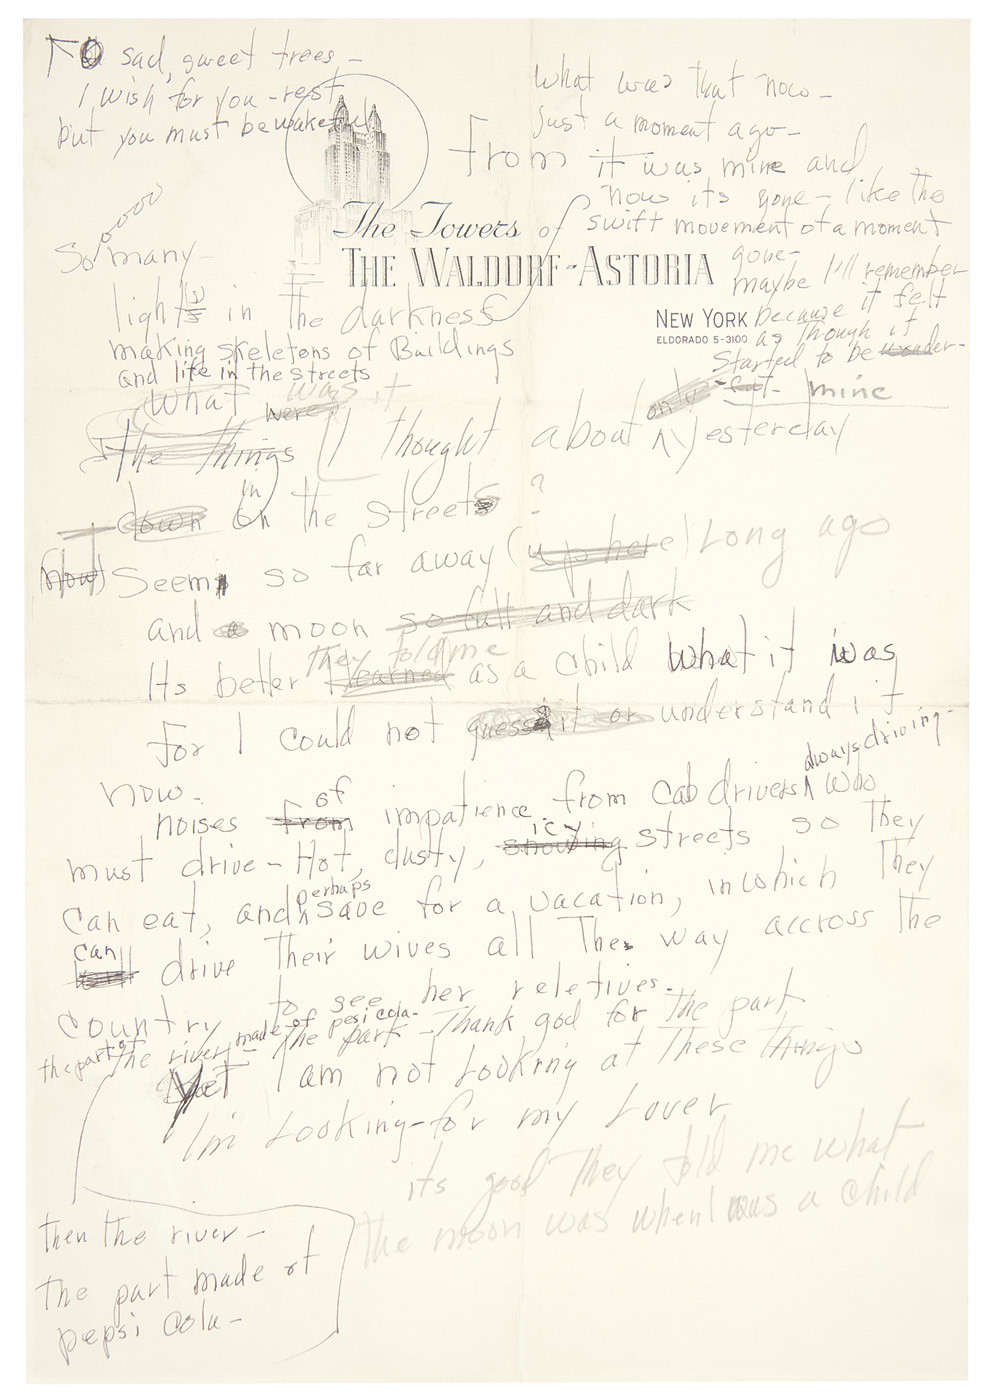 TO sad, sweet trees —
I wish for you — rest
but you must be wakeful
What was that now —
just a moment ago —
From it was mine and
now its gone — like the
swift movement of a moment
gone —
maybe I'll remember
because it felt
as though it
started to be wonder-
mine
The Towers of
THE WALDORF-ASTORIA
NEW YORK
ELDORADO 5-3100
So oooo many —
lights in the darkness
making skeletons of Buildings
and life in the streets
What was it
were
the things I thought about only yesterday
down in on the streets ?
(now) Seems so far away (up here) Long ago
and a moon so full and dark
they told me
Its better learned as a child what it was
for I could not guess it or understand it
now.
always driving —
noises from of impatience from cab drivers who
must drive — Hot, dusty, snowing icy streets so They
can eat, and perhaps save for a vacation, in which They
can
drive Their wives all The way accross the
country to see her reletives.
made of pesi cola —
the part of the river — the part — Thank god for the part,
Yet I am not Looking at These Things
I'm Looking — for my Lover
its good They told me what
the moon was when I was a child
then the river —
the part made of
pepsi cola —